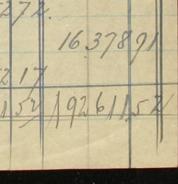 272.
1637891
217
152 1926152